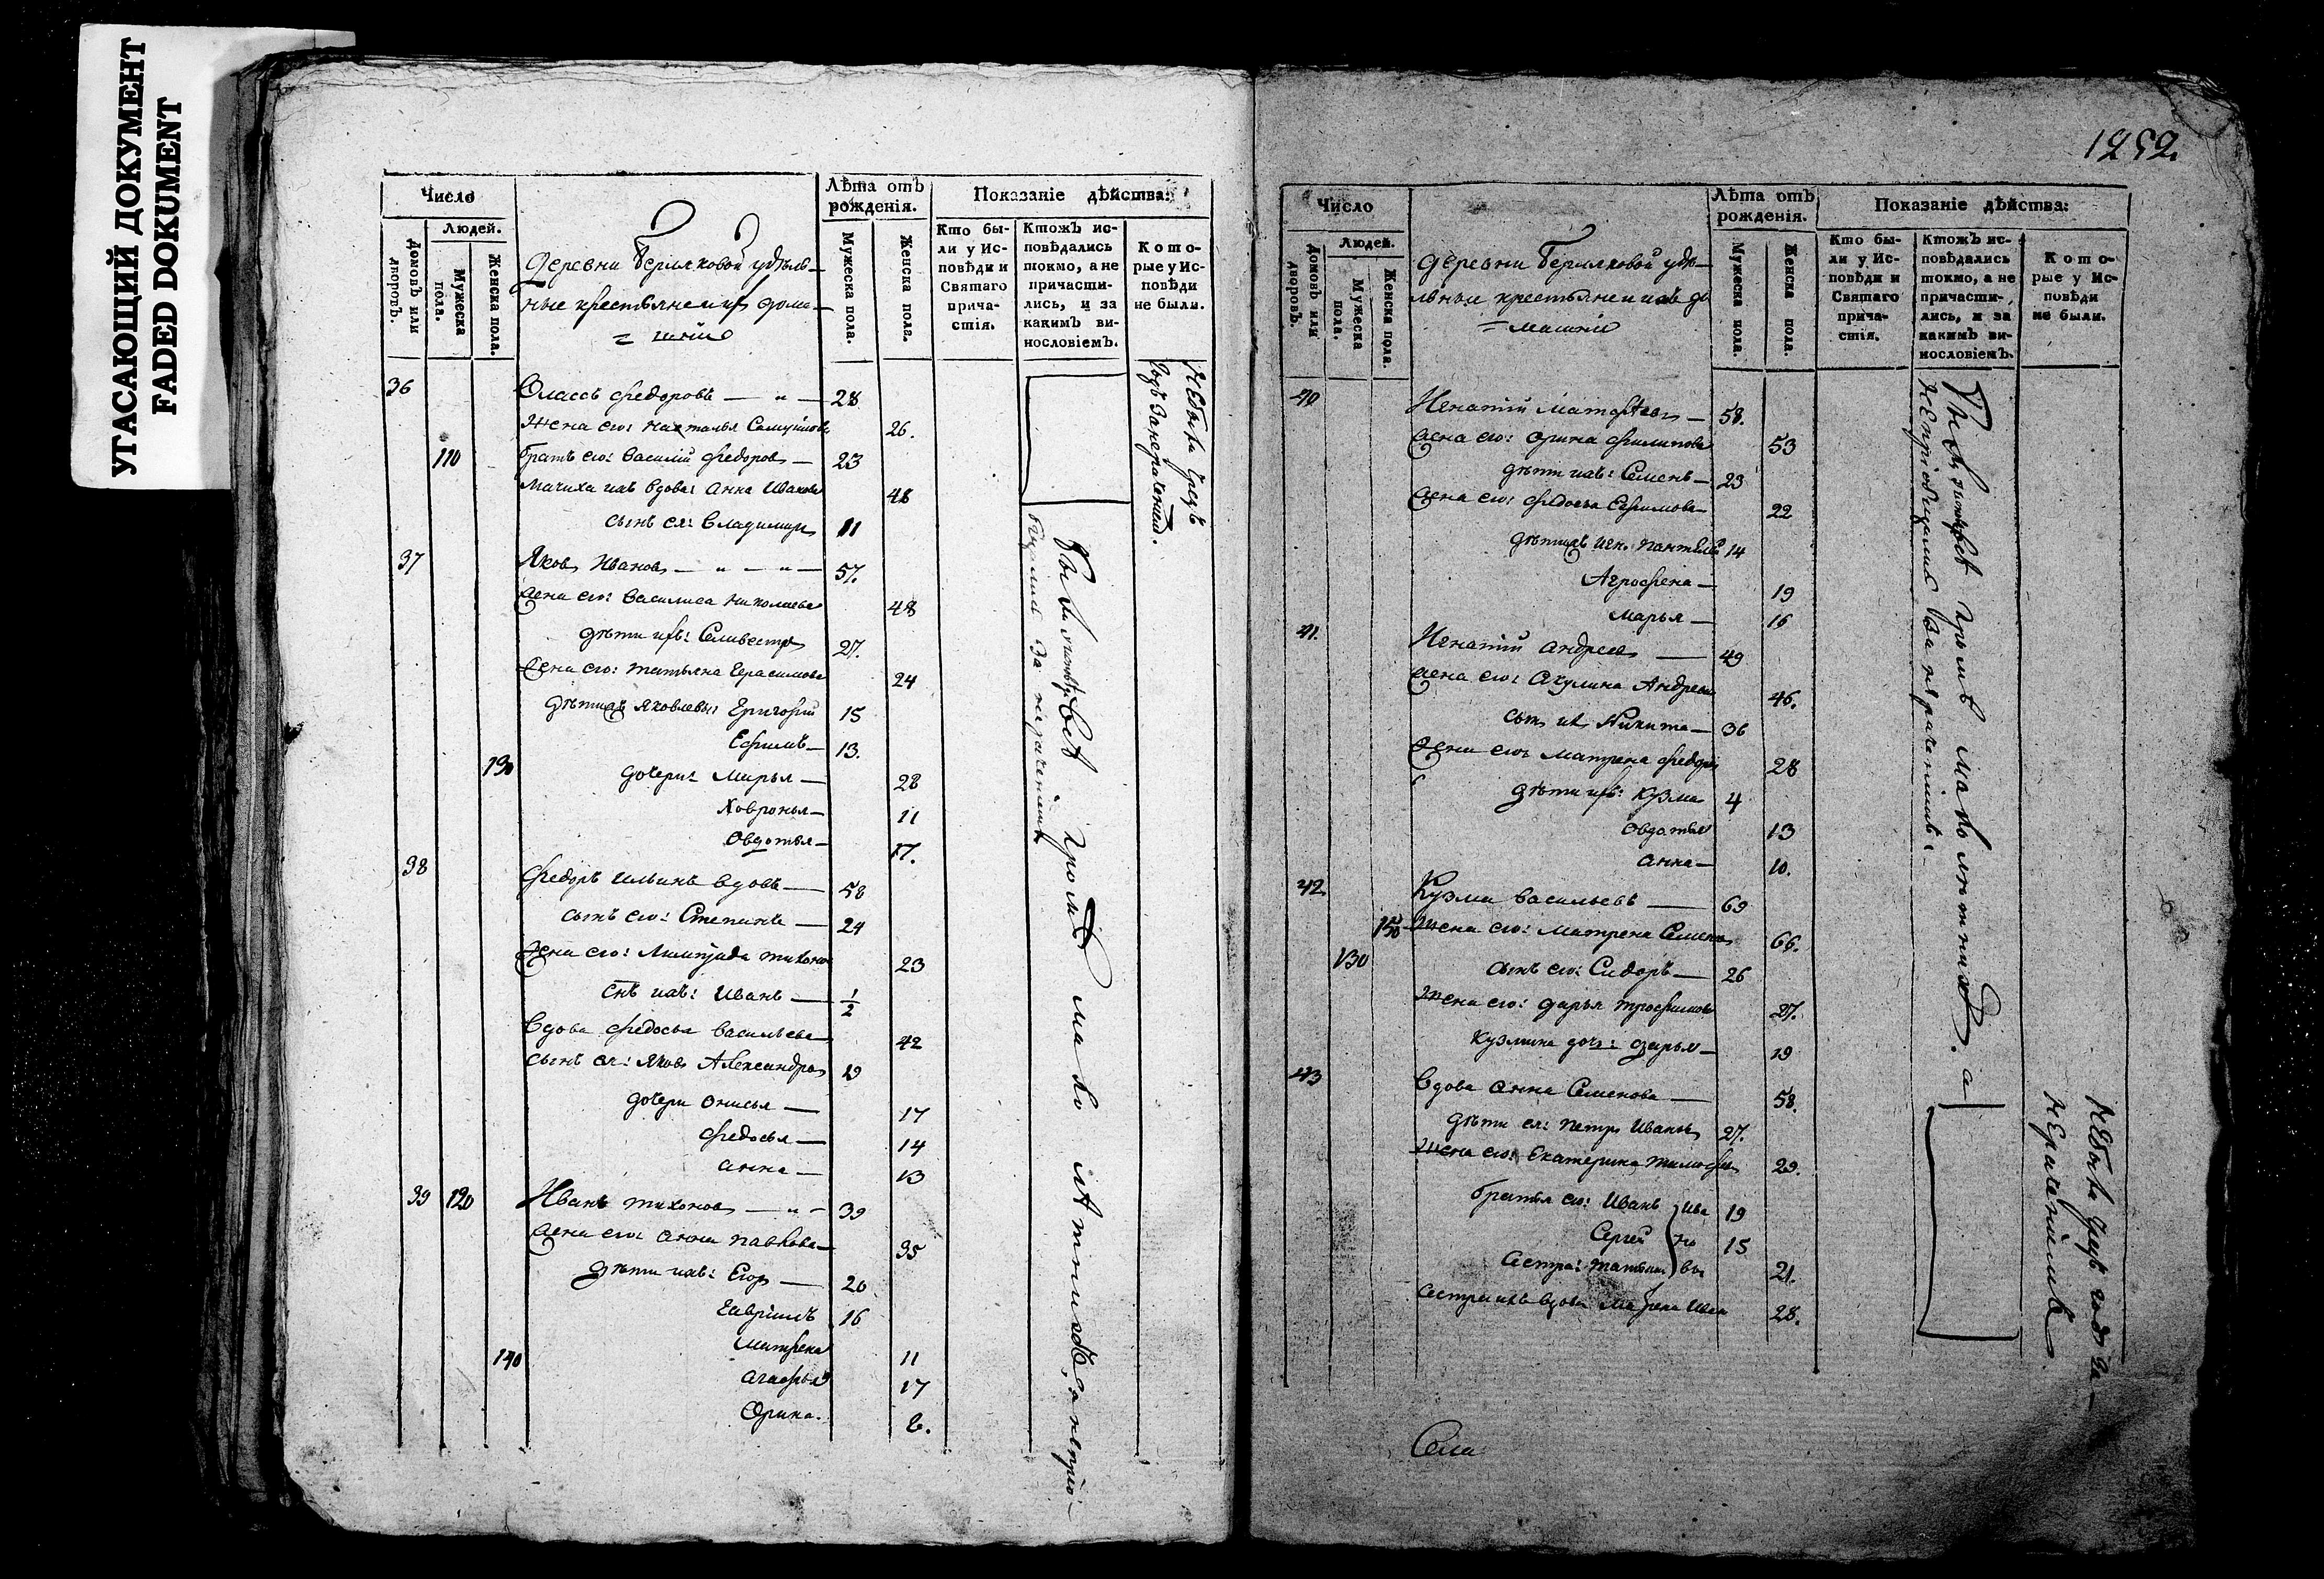 УГАСАЮЩИЙ ДОКУМЕНТ
FADED DOKUMENT
Число
Людей.
Домовъ или дворовъ.
Мужеска пола.
Женска пола.
деревни Берляковой удѣль-
ные крестьяне и ихъ дома-
= шніе
Лѣта отъ рожденія.
Мужеска пола.
Женска пола.
Показаніе дѣйства:
Кто бы-
ли у Ис-
повѣди и
Святаго
прича-
стія.
Ктожъ ис-
повѣдались
токмо, а не
причасти-
лись, и за
какимъ ви-
нословіемъ.
Кото-
рые у Ис-
повѣди
не были.
36 Власъ Федоровъ — 28
Жена его: Наталья Самуилова 26.
110 братъ его: Василій Федоровъ — 23
Мачиха ихъ вдова: Анна Иванова 48
сынъ ея: Владимиръ 11
37 Яковъ Ивановъ — 57.
Жена его: Василиса Николаева 48
дѣти ихъ: Селивестръ 27.
Жена его: Татьяна Герасимова 24
дѣтижъ Яковлевы: Григорій 15
Ефимъ — 13.
130 дочери: Марья — 28
Ховронья — 11
Овдотья — 17.
38 Федоръ Ильинъ вдовъ — 58
сынъ его: Степанъ — 24
Жена его: Тихоно 23
снъ ихъ: Иванъ — 1/2
Вдова Федосья Васильева 42
сынъ ея: Яковъ Александровъ 19
дочери Онисья — 17
Федосья — 14
Анна — 13
39 120 Иванъ Тихоновъ — 39
Жена его: Анна Павлова — 35
дѣти ихъ: Егоръ — 20
Гавріилъ 16
Матрена 11
140 Агафья 17
Орина. 8.
не были чрезъ
годъ за нераченіемъ.
были у исповѣди всѣ кромѣ малолѣтнихъ, а непріо-
бщились за нераченіемъ
1252.
Число
Людей.
Домовъ или дворовъ.
Мужеска пола.
Женска пола.
деревни Берляковой удѣ-
льные крестьяне и ихъ до
= машніе
Лѣта отъ рожденія.
Мужеска пола.
Женска пола.
Показаніе дѣйства:
Кто бы-
ли у Ис-
повѣди и
Святаго
прича-
стія.
Ктожъ ис-
повѣдались
токмо, а не
причасти-
лись, и за
какимъ ви-
нословіемъ.
Кото-
рые у Ис-
повѣди
не были.
40 Игнатій Матфѣевъ — 58.
Жена его: Орина Филипова 53
дѣти ихъ: Семенъ — 23
Жена его: Федосья Ефимова — 22
дѣтижъ Игн. 14
Агрофена — 19
Марья — 16
41. Игнатій Андреевъ — 49
Жена его: Акулина Андреева 46.
сынъ ихъ Никита — 36
Жена его: Матрена Федорова 28
дѣти ихъ: Кузма 4
Овдотья 13
Анна — 10.
42 Кузма Васильевъ — 69
150 Жена его: Матрена Семенова 66.
130 сынъ его: Сидоръ — 26
Жена его: Дарья Трофимова 27.
Кузмина дочь: Дарья — 19
43 Вдова Анна Семенова — 58.
дѣти ея: Петръ Ивановъ 27.
Жена его: Екатерина Тимофеева 29.
братья его: Иванъ } Ива 19
Сергей } но 15
Сестра: Татьяна } вы 21.
Сестра ихъ вдова Матрена Иван 28.
всѣ кромѣ малолѣтнихъ. а
непріобщились за нераченіемъ.
не были чрезъ годъ за-
нераченіемъ
Села